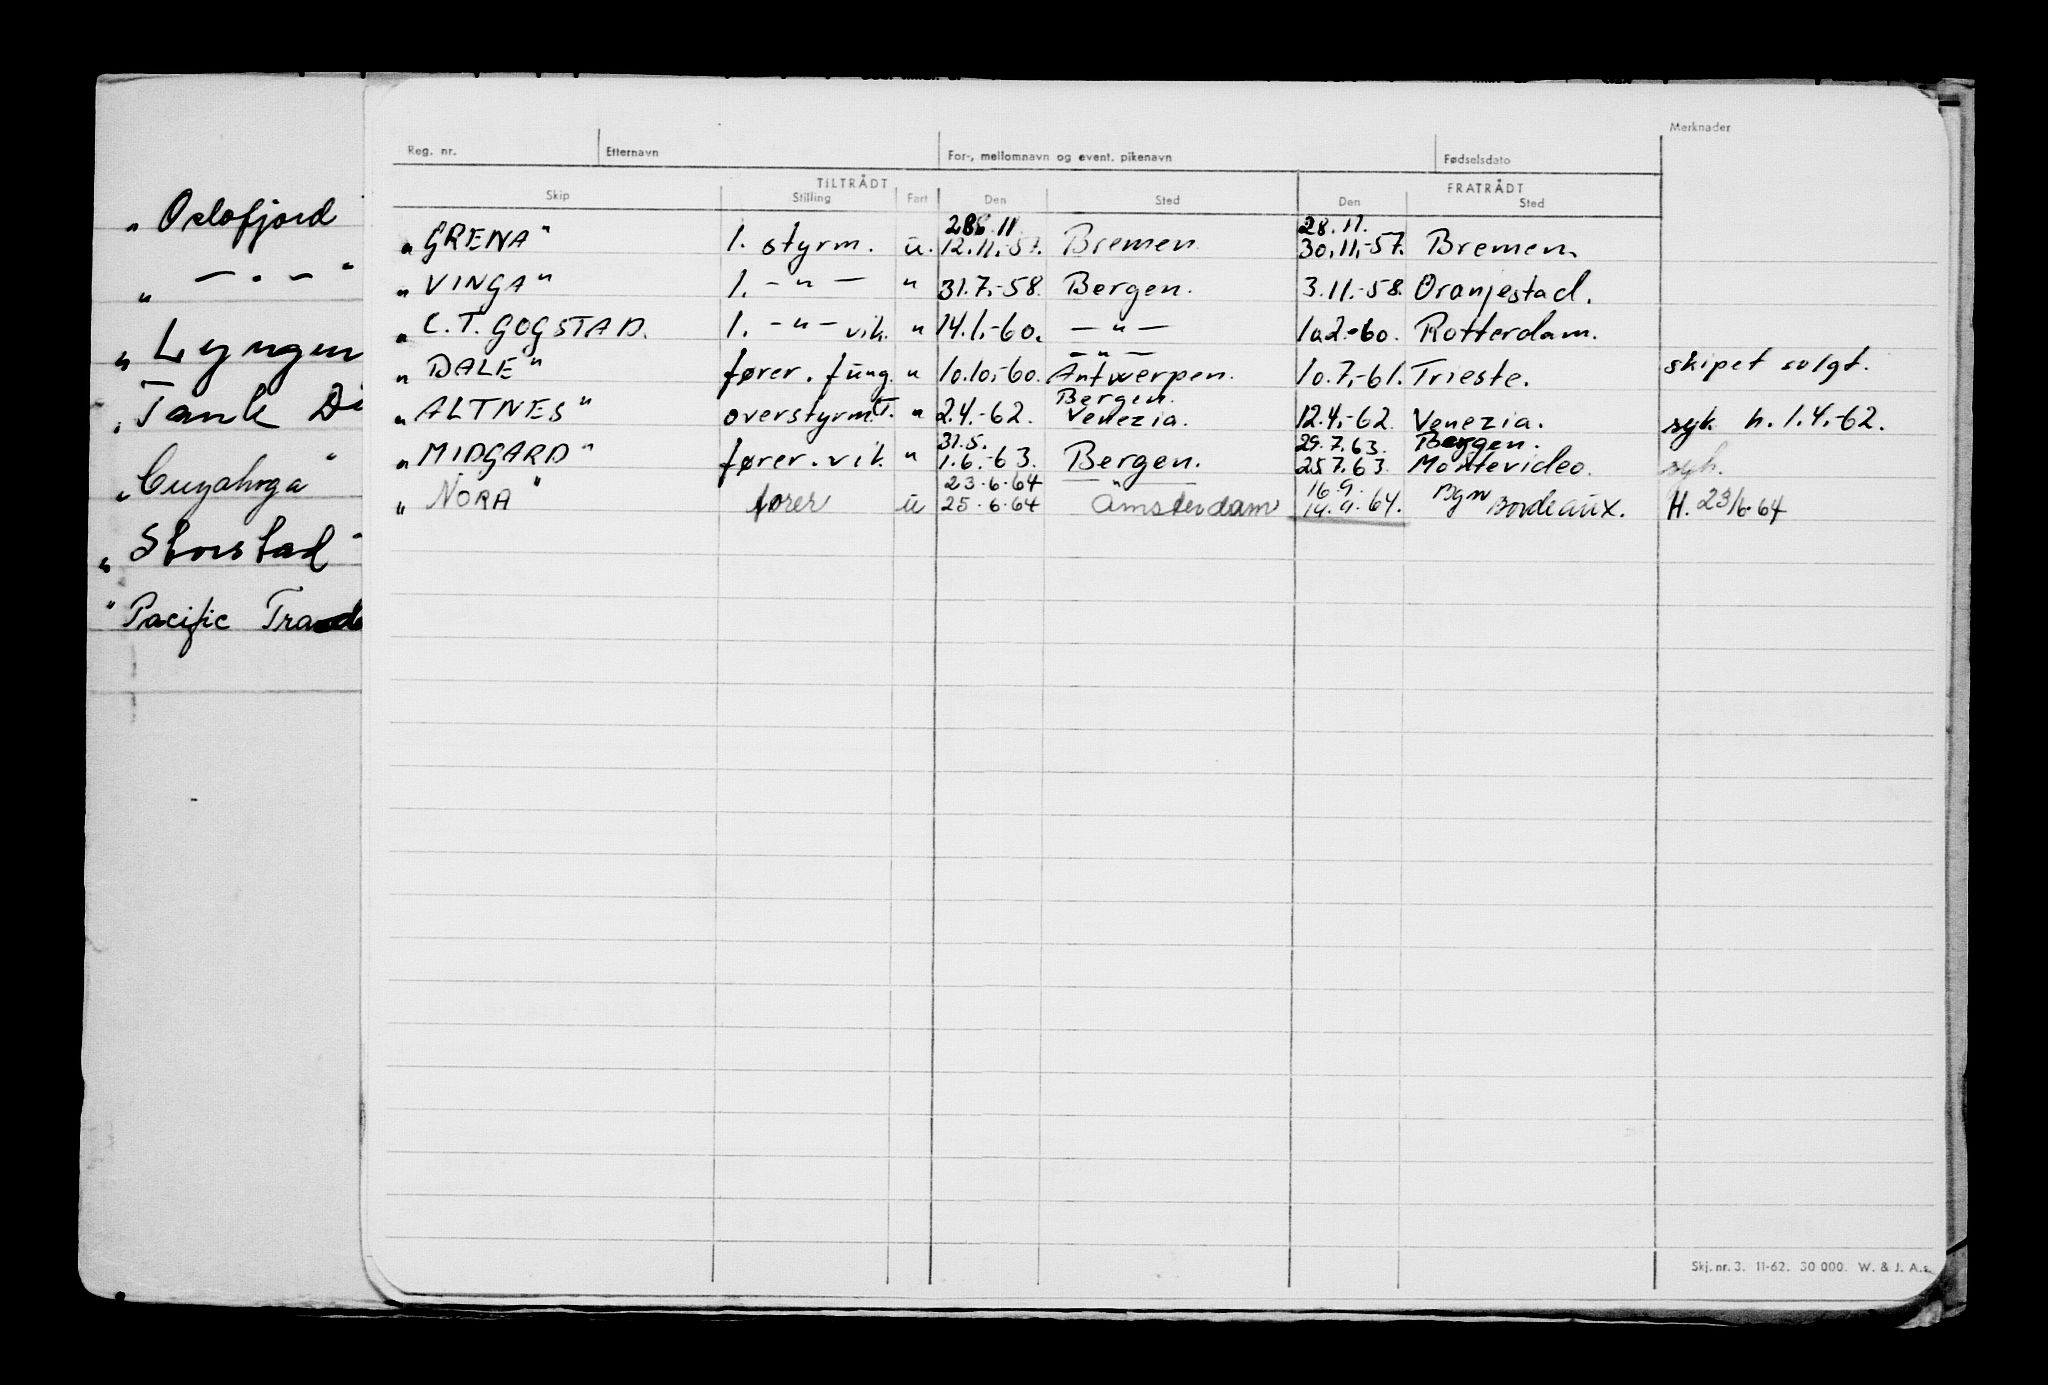 „ Oslofjord
„ — " — "
„ Lyngen
„ Tank Di
„ Cuyahoga "
„ Storstad "
" Pacific Trad
Merknader
Reg. nr. Etternavn For-, mellomnavn og event. pikenavn Fødselsdato
TILTRÅDT FRATRÅDT
Skip Stilling Fart Den Sted Den Sted
28.11. 28.11.
„ GRENA " 1. styrm. u. 12.11.-57. Bremen. 30.11.-57. Bremen.
„ VINGA " 1. - " - " 31.7.-58. Bergen. 3.11.-58. Oranjestad.
„ C.T. GOGSTAD. 1. - " - vik. " 14.1.-60. — " — 10.2.-60. Rotterdam.
— " —
„ DALE " fører. fung. " 10.10.-60. Antwerpen. 10.7.-61. Trieste. skipet solgt.
Bergen.
„ ALTNES " overstyrm. T. " 2.4.-62. Venezia. 12.4.-62. Venezia. syk h. 1.4.-62.
31.5. 29.7.63. Bergen.
„ MIDGARD " fører. vik " 1.6.-63. Bergen. 25.7.63. Montevideo. syk.
23.6.64 — " — 16.9. Bgn
„ NORA " fører u 25.6.64 Amsterdam 14.9.64. Bordeaux. H. 23/6.64
Skj. nr. 3. 11-62. 30 000. W. & J. A.s.